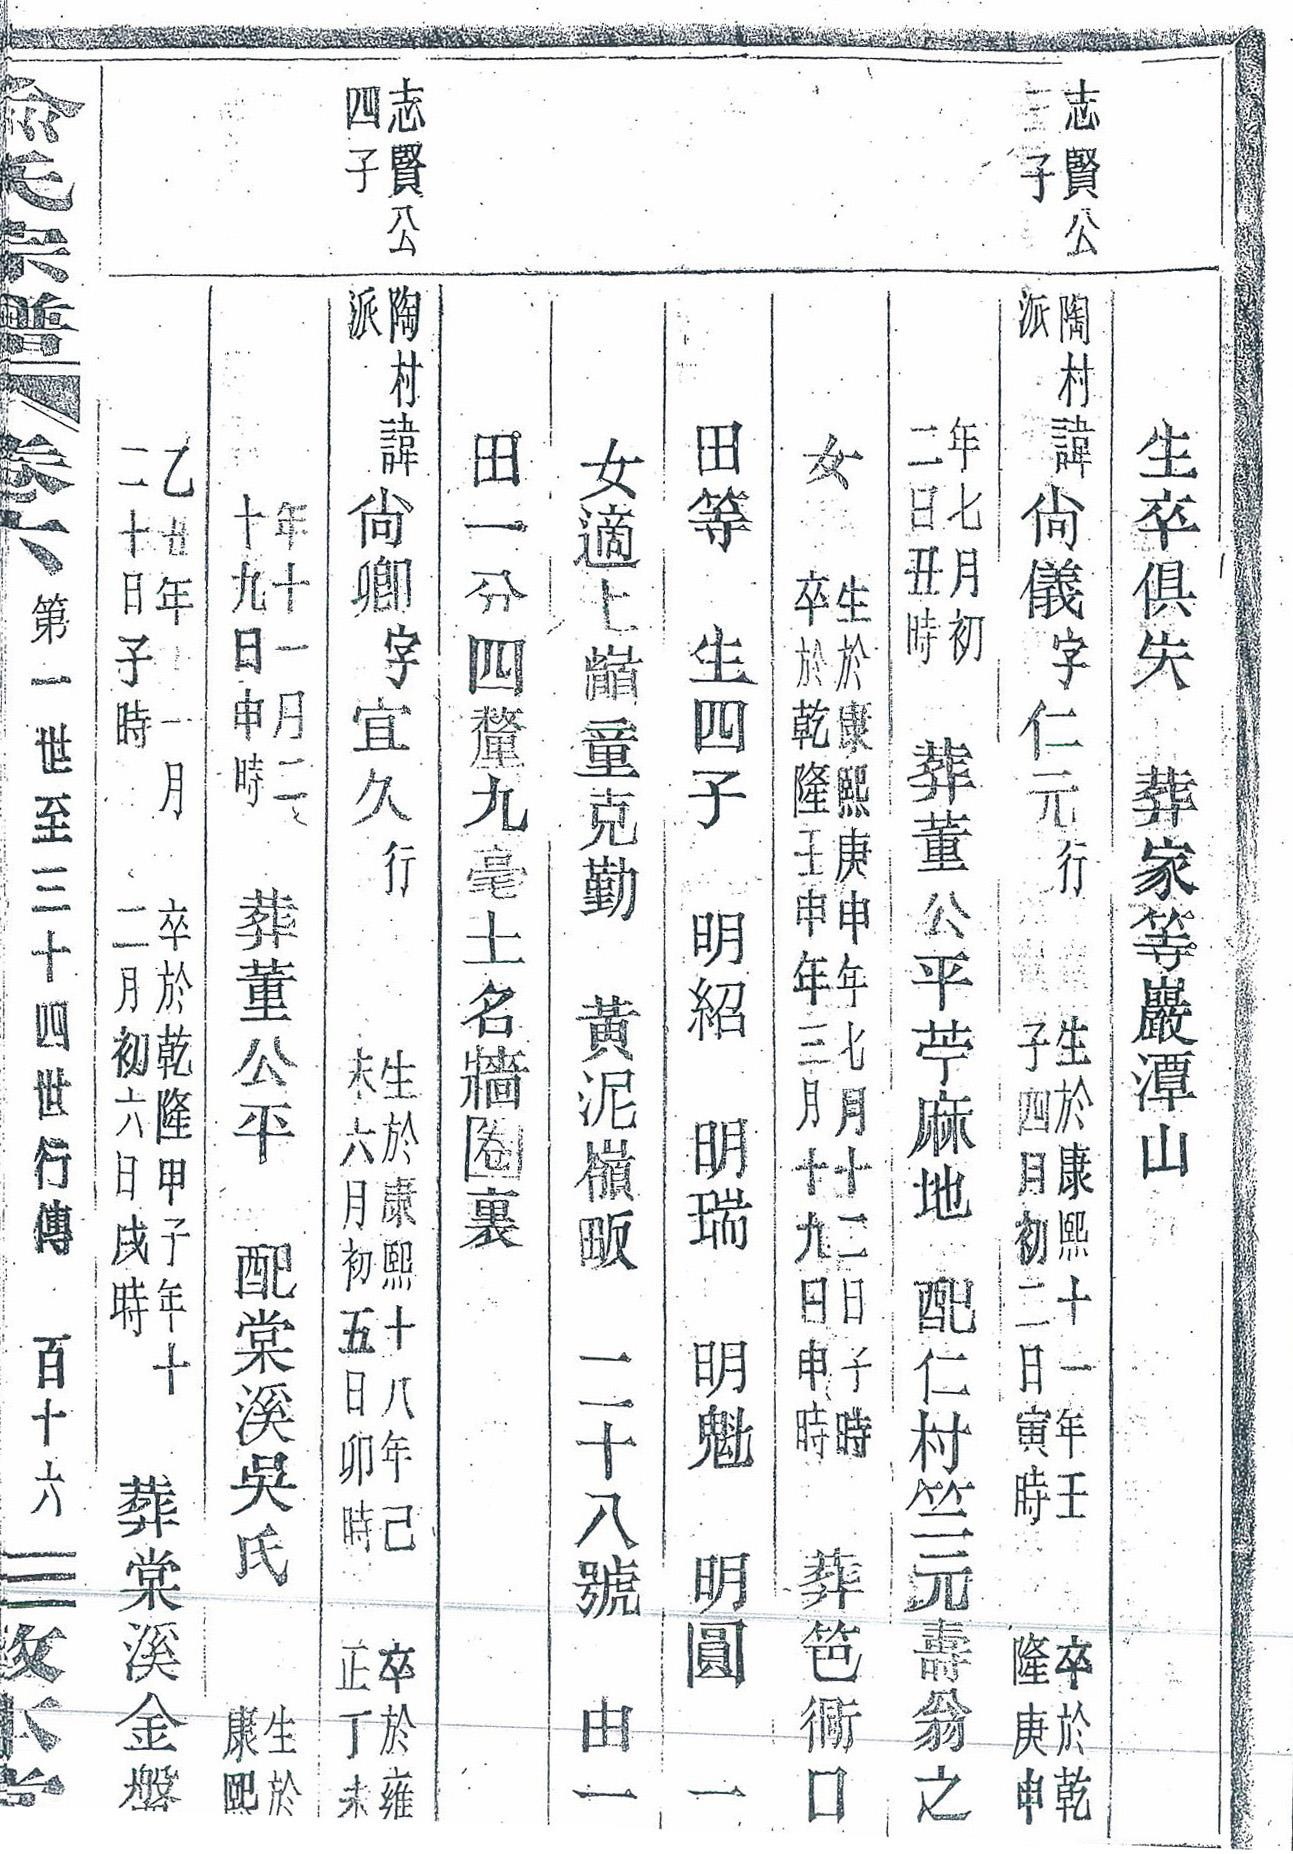 生卒俱失 葬家等巖潭山
志賢公
子
陶村諱
派
尙儀
字
仁元
行
生於康熙十一年壬
子四月初二日寅時
卒於乾
隆庚申
年七月初
二日丑時
葬董公平苧麻地 配仁村竺元壽翁之
女
生於康熙庚申年七月十二日子時
卒於乾隆壬申年三月十九日申時
葬笆衕口
田等 生四子 明紹 明瑞 明魁 明圓 一
女適上嵛童克勤 黃泥嶺畈 二十八號 由一
田一分四釐九毫土名牆圈裏
志賢公
四子
陶村諱
派
尙卿
字
宜久
行
生於康熙十八年己
未六月初五日卯時
卒於雍
正丁未
年十一月二
十九日申時
葬董公平 配棠溪吳氏
生於
康熙
乙丑年 一月
二十日子時
卒於乾隆甲子年十
二月初六日戌時
葬棠溪金盤
俞氏宗譜 卷六 第一世至三十四世行傳 百十六